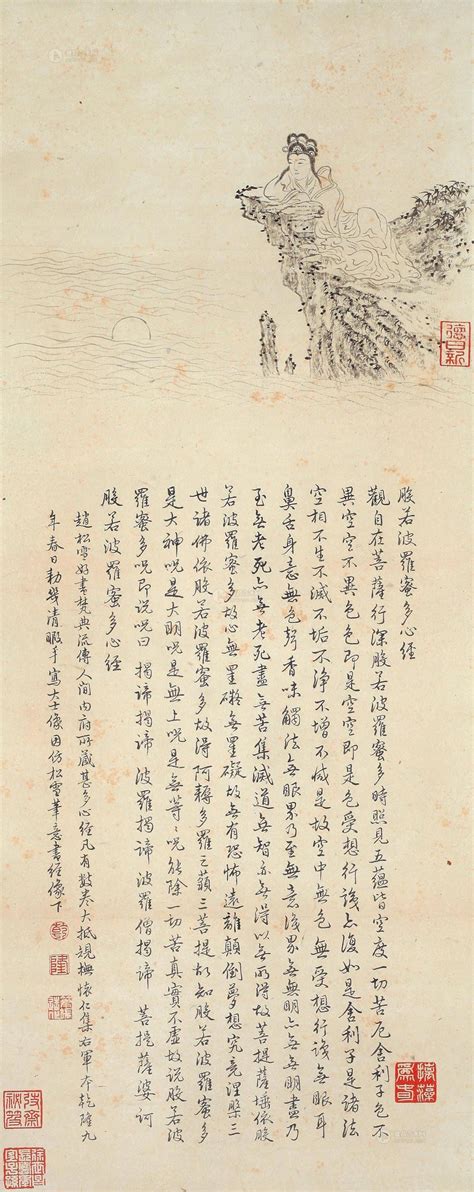 德日新
般若波羅蜜多心經
觀自在菩薩行深般若波羅蜜多時照見五蘊皆空度一切苦厄舍利子色不
異空空不異色色即是空空即是色受想行識亦復如是舍利子是諸法
空相不生不滅不垢不淨不增不減是故空中無色無受想行識無眼耳
鼻舌身意無色聲香味觸法無眼界乃至無意識界無無明亦無無明盡乃
至無老死亦無老死盡無苦集滅道無智亦無得以無所得故菩提薩埵依般
若波羅蜜多故心無罣礙無罣礙故無有恐怖遠離顛倒夢想究竟涅槃三
世諸佛依般若波羅蜜多故得阿耨多羅三藐三菩提故知般若波羅蜜多
是大神呪是大明呪是無上呪是無等等呪能除一切苦真實不虛故說般若波
羅蜜多呪即說呪曰 揭諦揭諦 波羅揭諦 波羅僧揭諦 菩提薩婆訶
般若波羅蜜多心經
趙松雪好書梵典流傳人間內府所藏甚多心經凡有數卷大抵規撫懷仁集右軍本乾隆九
年春日勅幾清暇手寫大士像因仿松雪筆意書經像下
乾隆
摛藻為春